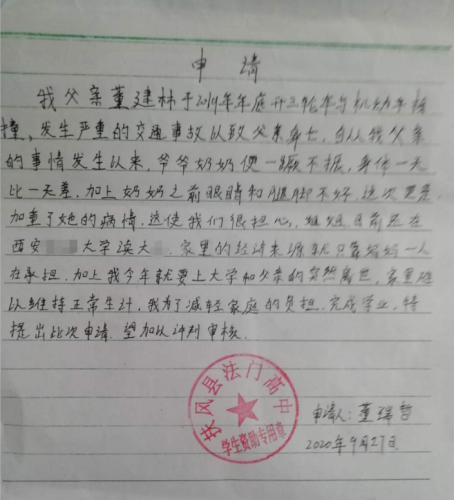 申请
我父亲董建林于2019年年底开三轮车与机动车相
撞,发生严重的交通事故以致父亲身亡,自从我父亲
的事情发生以来,爷爷奶奶便一蹶不振,身体一天
比一天差,加上奶奶之前眼睛和腿脚不好,这次更是
加重了她的病情,这使我们很担心,姐姐目前正在
西安 大学读大 ,家里的经济来源就只靠妈妈一人
在承担,加上我今年就要上大学和父亲的突然离世,家里难
以维持正常生计,我为了减轻家庭的负担,完成学业,特
提出此次申请,望加以评判审核.
扶风县法门高中
学生资助专用章
申请人:董瑞哲
2020年9月27日